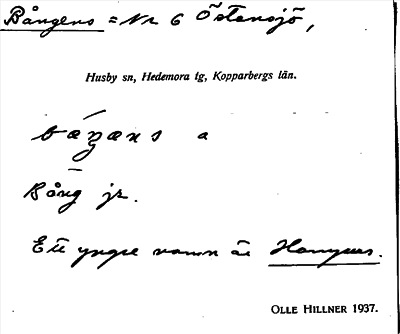 Bångens = Nr 6 Östansjö,
Husby sn, Hedemora tg, Kopparbergs län.
a
Bång jr.
Ett yngre namn är
OLLE HILLNER 1937.